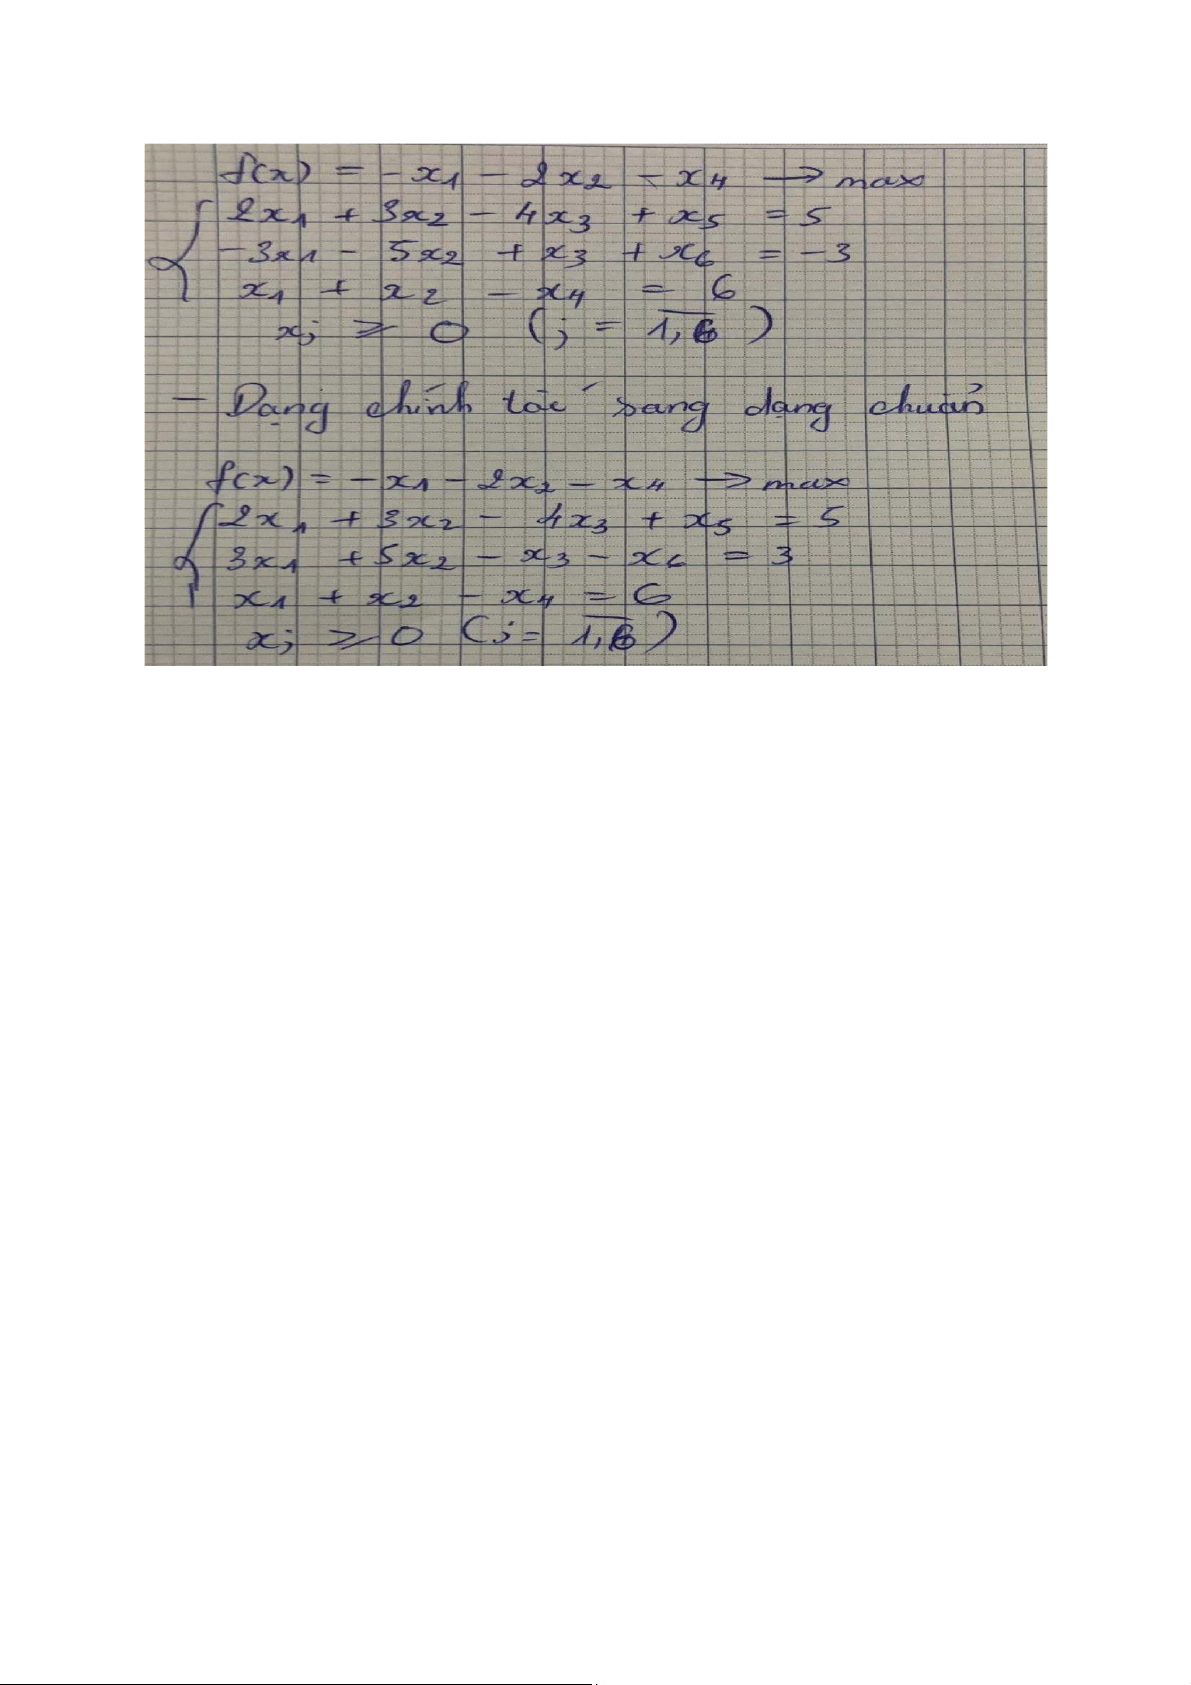 f(x) = -x₁ - 2x₂ - x₄ → max
2x₁ + 3x₂ - 4x₃ + x₅ = 5
-3x₁ - 5x₂ + x₃ + x₆ = -3
x₁ + x₂ - x₄ = 6
xⱼ ≥ 0 (j = 1,6)
- Dạng chính tắc sang dạng chuẩn
f(x) = -x₁ - 2x₂ - x₄ → max
2x₁ + 3x₂ - 4x₃ + x₅ = 5
3x₁ + 5x₂ - x₃ - x₆ = 3
x₁ + x₂ - x₄ = 6
xⱼ ≥ 0 (j = 1,6)